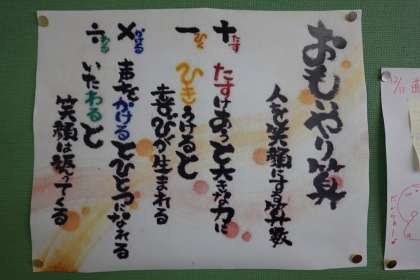 おもいやり算
人を笑顔にする算数
+たす
たすけあうと大きな力に
−ひく
ひきうけると
喜びが生まれる
×かける
声をかけるとひとつになれる
÷
いたわると
笑顔は返ってくる